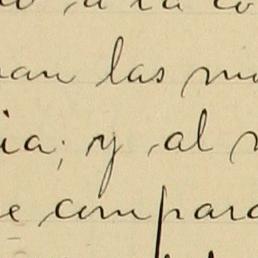 a la co
an las m
ia; y al
e compara